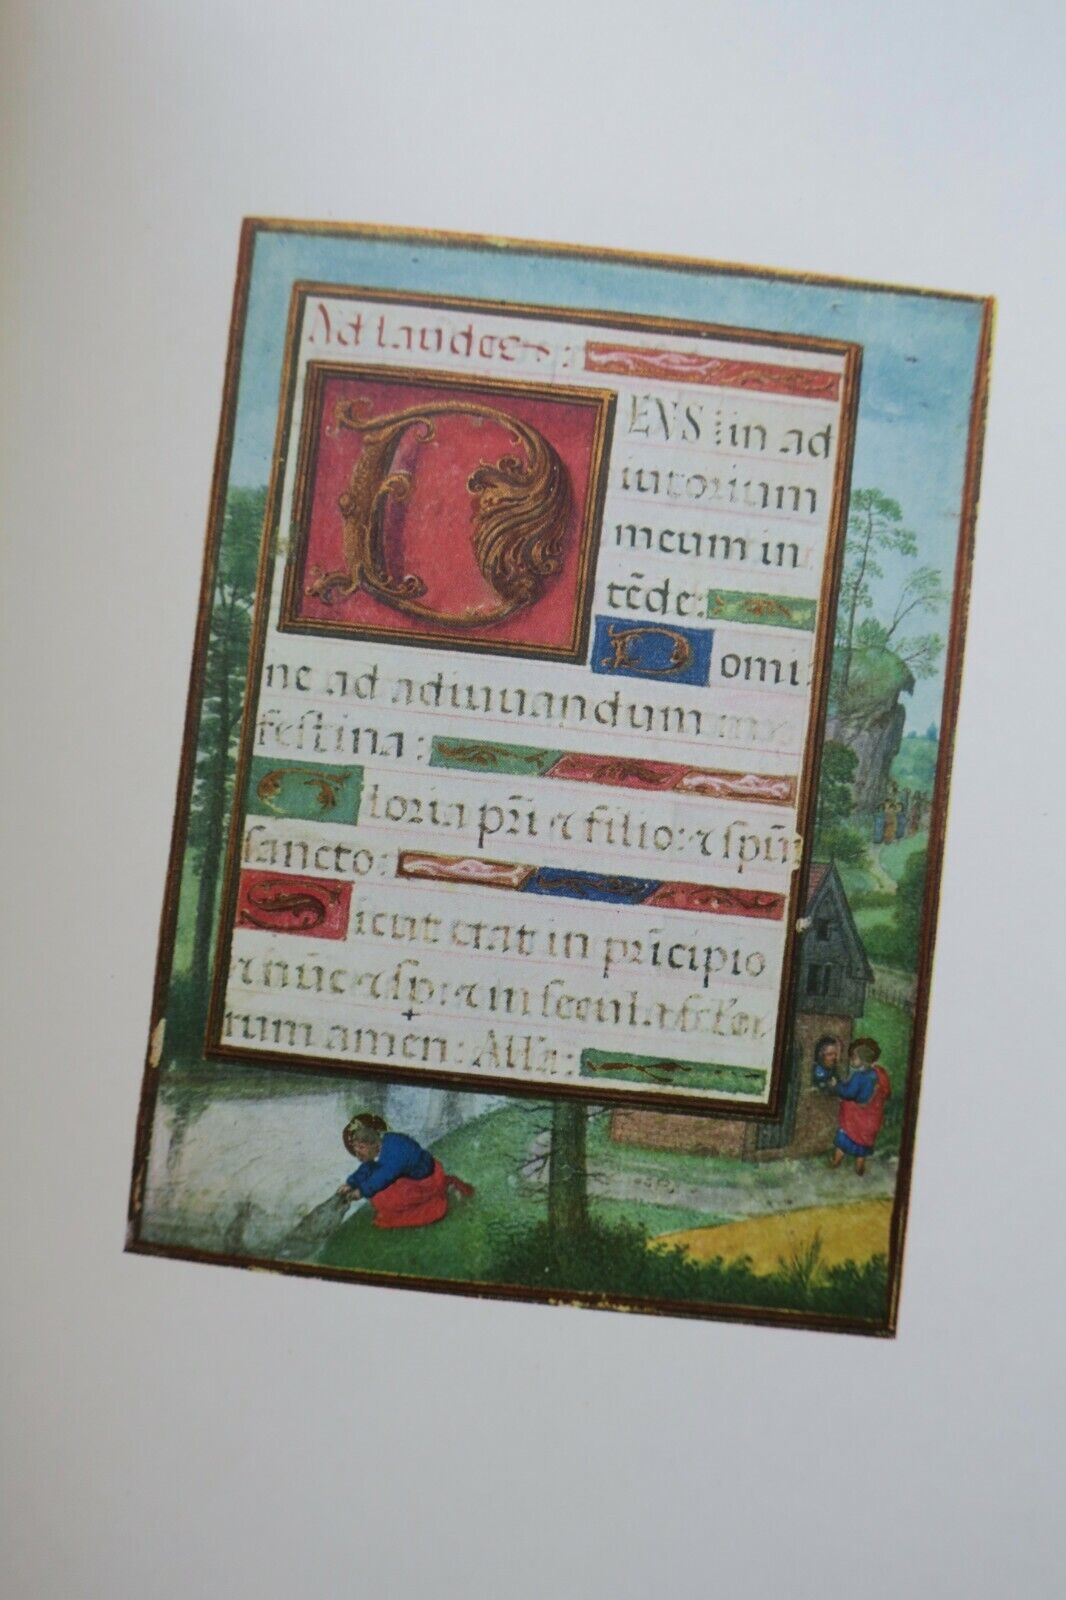 Ad laudes:
DEVS in ad
iutorium
meum in
tēde:
Domi
ne ad adiuuandum me
festina:
Gloria pr̄i ⁊ filio: ⁊ spūi
sancto:
Sicut erat in prīcipio
⁊ nūc ⁊ sp: ⁊ in secula seclo
rum amen: Alla: